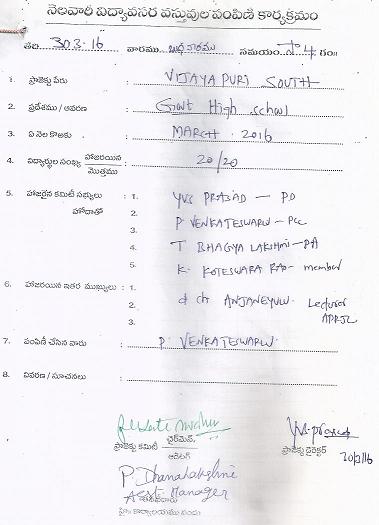 నెలవారీ విద్యావసర వస్తువుల పంపిణి కార్యక్రమం
తేది 30.3.16 వారము బుధవారము సమయం సా 4 గం॥
1. ప్రాజెక్టు పేరు : VIJAYA PURI SOUTH
2. ప్రదేశము / ఆవరణ : Govt High School
3. ఏ నెల కొరకు : MARCH . 2016
4. విద్యార్థుల సంఖ్య హాజరయిన / మొత్తము : 20/20
5. హాజరైన కమిటీ సభ్యులు : 1. YVS PRASAD — PD
హోదాతో 2. P VENKATESWARLU — PCC
3.
4. T BHAGYA LAKSHMI — PA
5. K. KOTESWARA RAO — member
6. హాజరయిన ఇతర ముఖ్యులు : 1.
2. ch ANJANEYULU. Lecturer
3. APRJC
7. పంపిణీ చేసిన వారు : P. VENKATESWARLU.
8. వివరణ / సూచనలు :
ప్రాజెక్టు కమిటీ ఛైర్‌మెన్, ప్రాజెక్టు డైరెక్టర్
ఆడిటర్ 30/3/16
P. Dhanalakshmi
Asst. Manager
హై: కార్యాలయము నందు